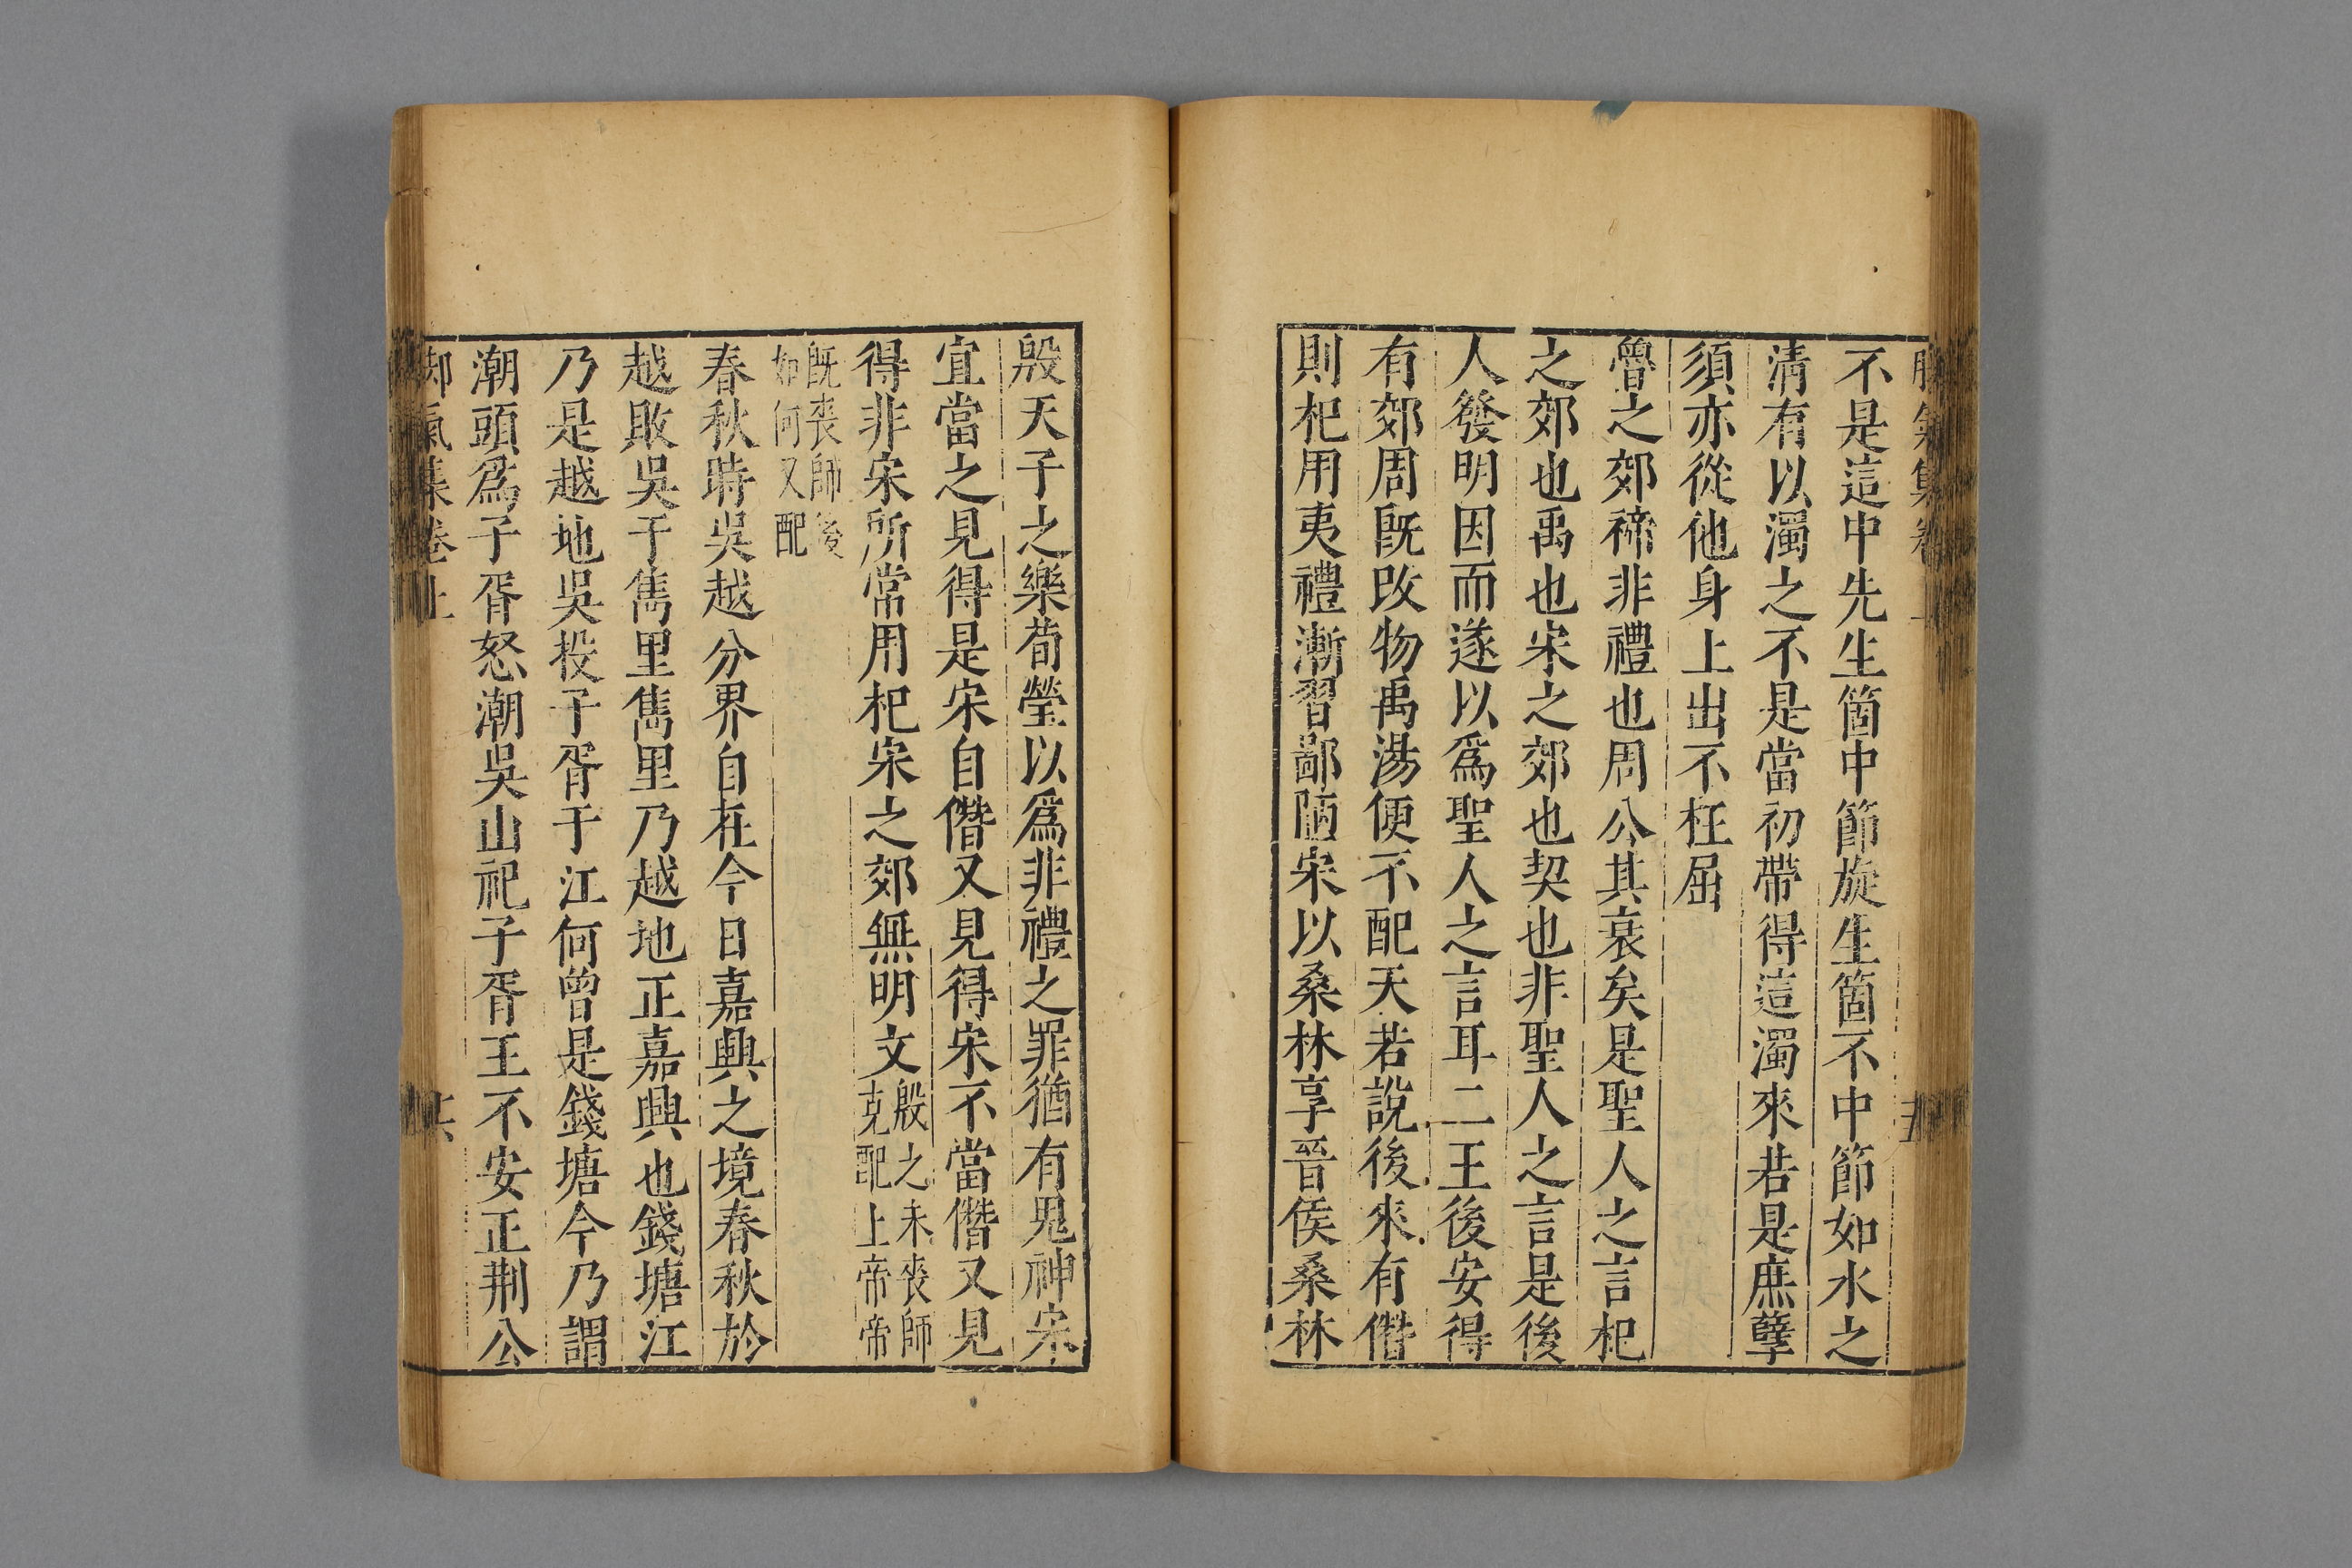 不是這中先生箇中節旋生箇不中節如水之
清有以濁之不是當初帶得這濁來若是庶孽
須亦從他身上出不枉屈
魯之郊禘非禮也周公其衰矣是聖人之言杞
之郊也禹也宋之郊也契也非聖人之言是後
人發明因而遂以爲聖人之言耳二王後安得
有郊周旣改物禹湯便不配天若說後來有僭
則杞用夷禮漸習鄙陋宋以桑林享晉侯桑林
殷天子之樂荀瑩以爲非禮之罪猶有鬼神宋
宜當之見得是宋自僭又見得宋不當僭又見
得非宋所常用杞宋之郊無明文殷之未喪師
克配上帝帝
旣喪師後
如何又配
春秋時吳越分界自在今日嘉興之境春秋於
越敗吳于雋里雋里乃越地正嘉興也錢塘江
乃是越地吳投子胥于江何曾是錢塘今乃謂
潮頭爲子胥怒潮吳山祀子胥王不安正荆公
脚氣集卷上
六